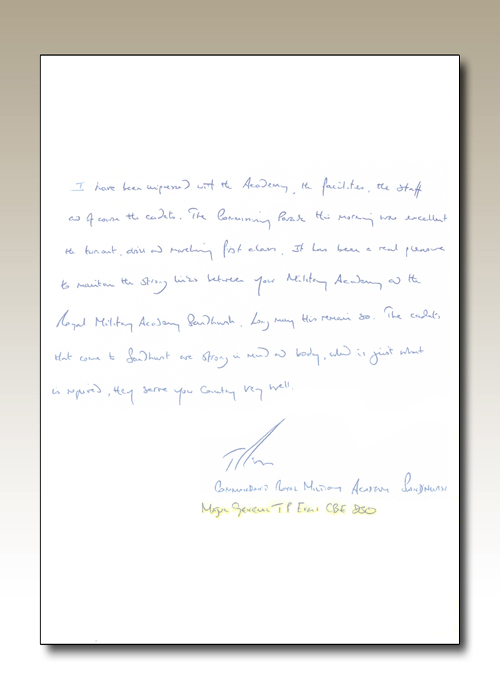 I have been impressed with the Academy, the facilities, the staff
and of course the cadets. The Commissioning Parade this morning was excellent
the turnout, drill and marching first class. It has been a real pleasure
to maintain the strong links between your Military Academy and the
Royal Military Academy Sandhurst. Long may this remain so. The cadets
that come to Sandhurst are strong in mind and body, which is just what
is required, they serve your Country very well.
Commandant Royal Military Academy Sandhurst
Major General T P Evans CBE DSO